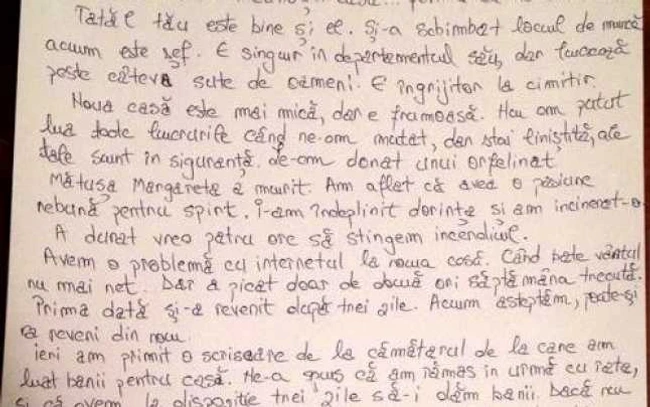 Tatăl tău este bine și el. Și-a schimbat locul de muncă
acum este șef. E singur în departamentul său, dar lucrează
peste câteva sute de oameni. E îngrijitor la cimitir.
Noua casă este mai mică, dar e frumoasă. N-au om putut
lua toate lucrurile când ne-om mutat, dar stai liniștită, ale
tale sunt în siguranță. Le-am donat unui orfelinat
Mătușa Margareta a murit. Am aflat că avea o pasiune
nebună pentru spirt. I-am îndeplinit dorința și am incinerat-o
A durat vreo patru ore să stingem incendiul.
Avem o problemă cu internetul la noua casă. Când bate vântul
nu mai net. Dar a picat doar de două ori săptămâna trecută.
Prima dată și-a revenit după trei zile. Acum așteptăm, poate-și
va reveni din nou.
Ieri am primit o scrisoare de la cămătarul de la care am
luat banii pentru casă. Ne-a spus că am rămas în urmă cu rata,
și că avem la dispoziție trei zile să-i dăm banii. Dacă nu